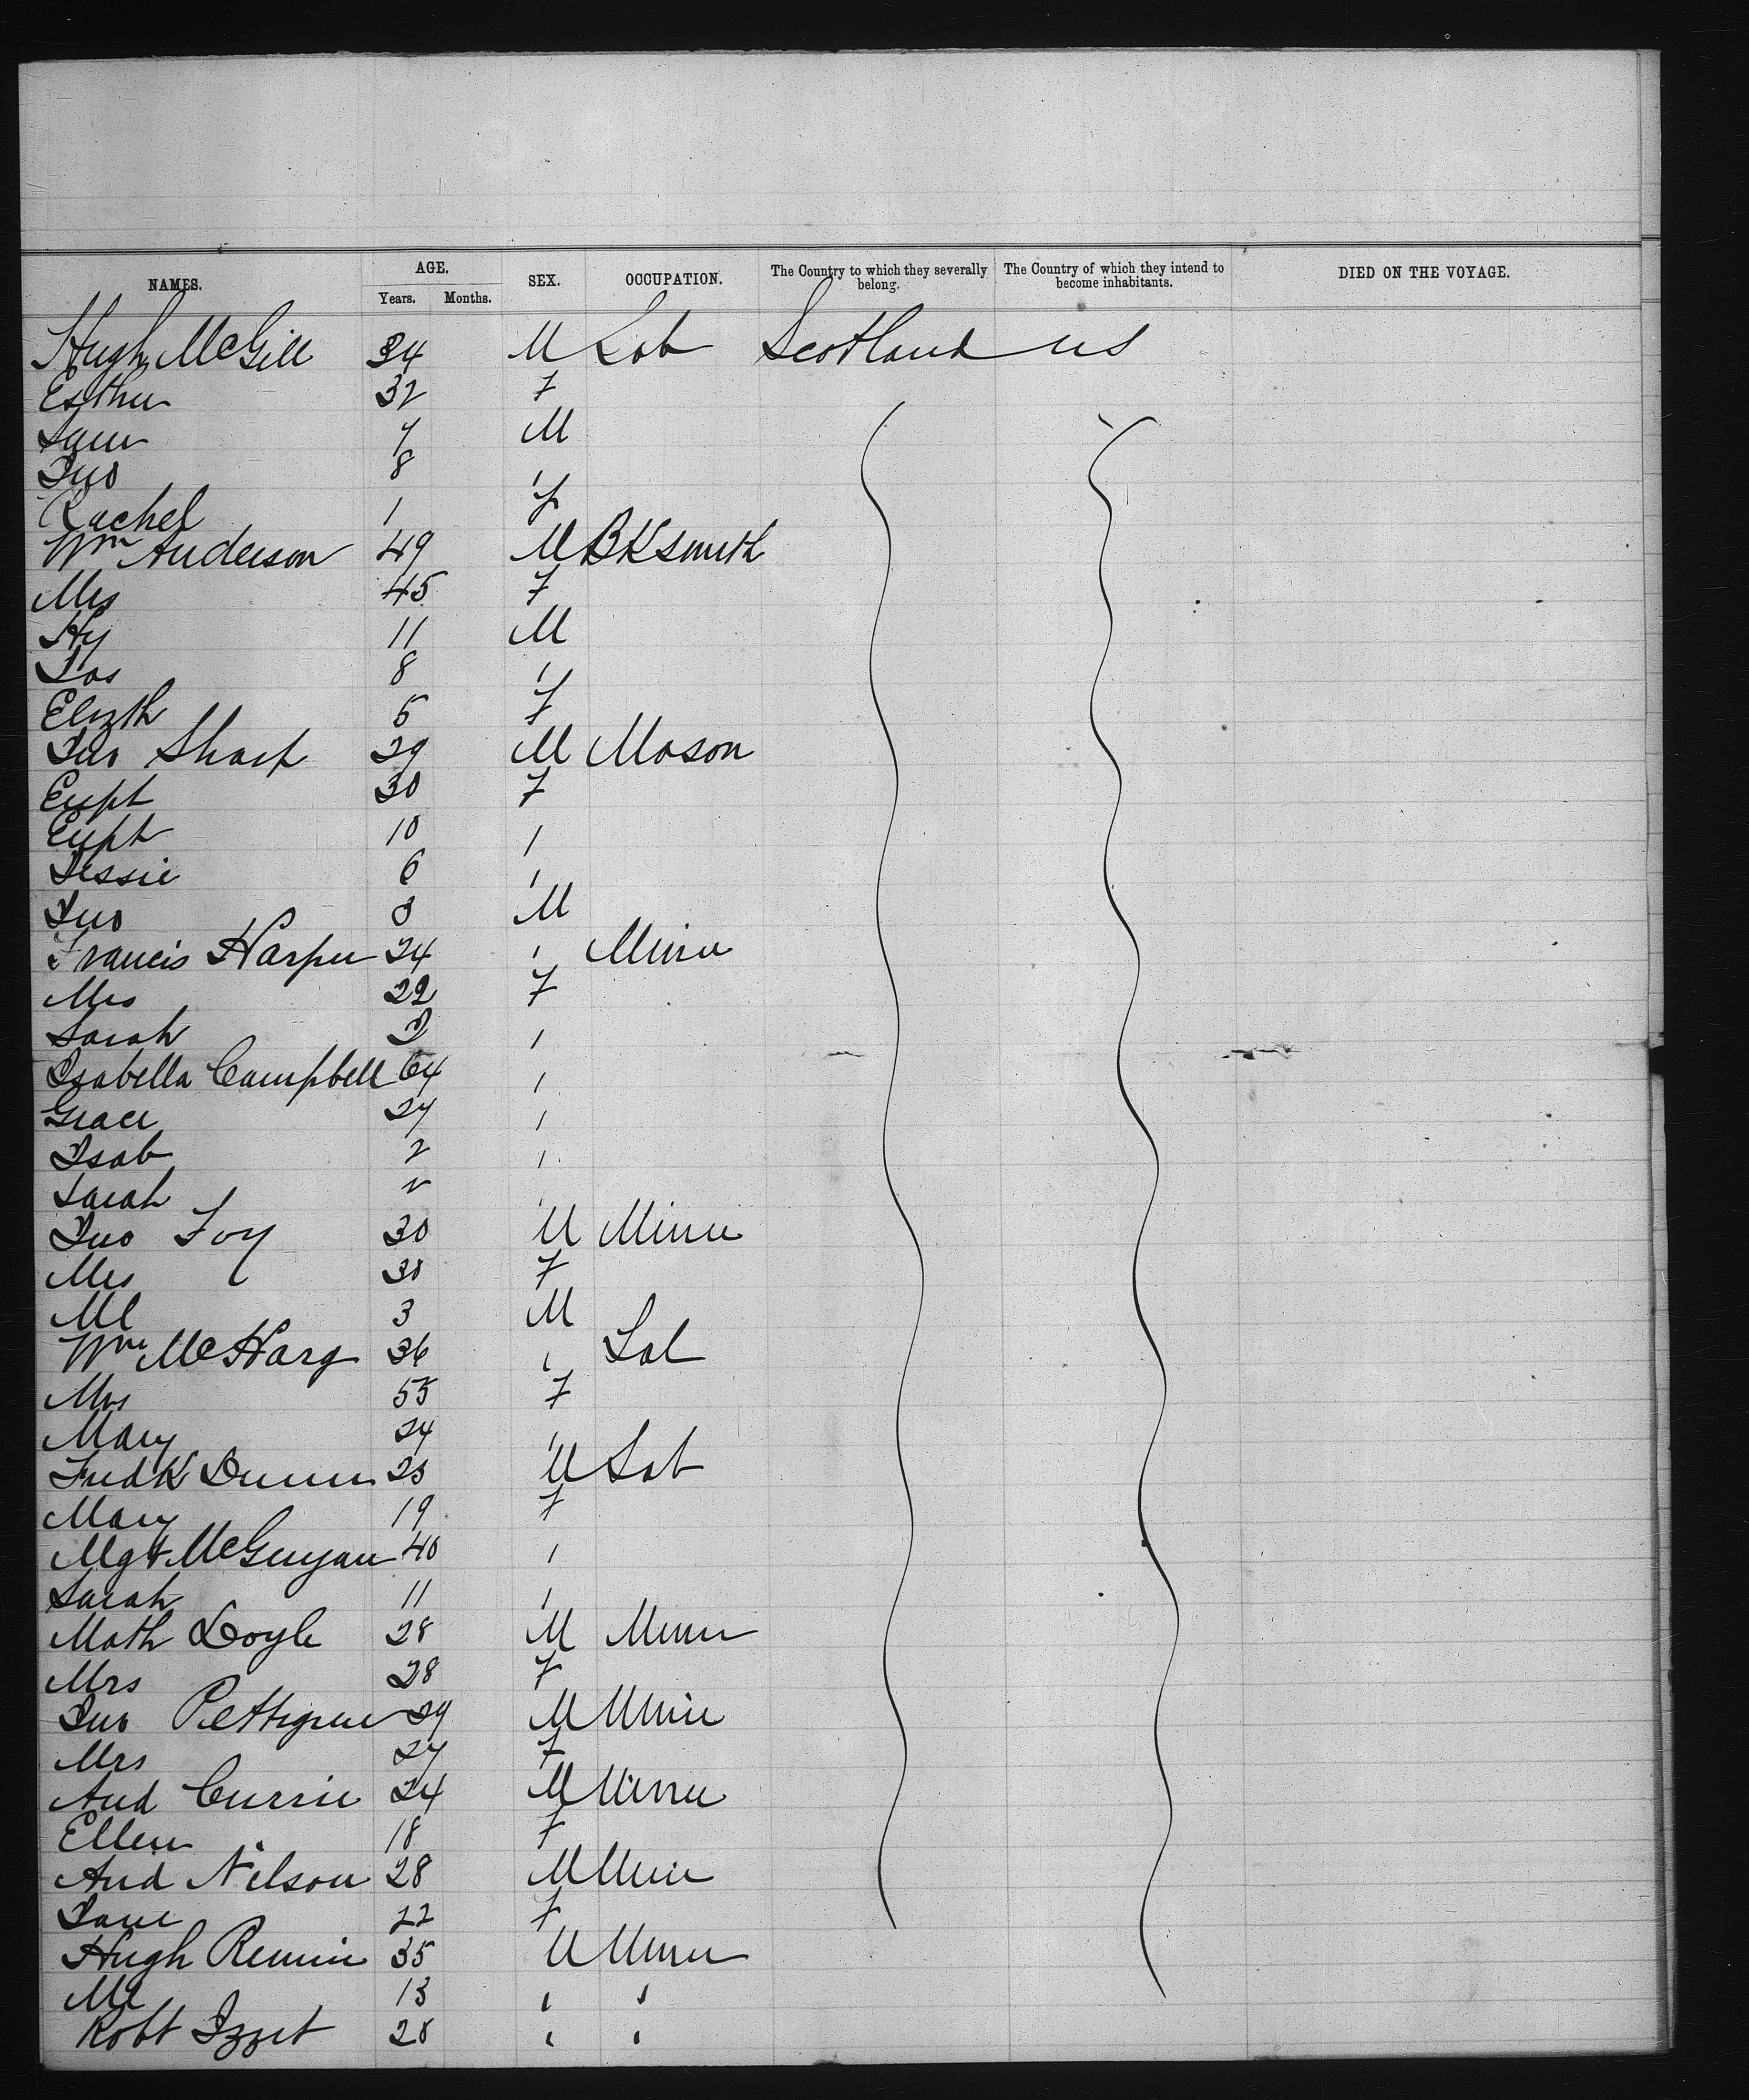 NAMES. AGE. SEX. OCCUPATION. The Country to which they severally belong. The Country of which they intend to become inhabitants. DIED ON THE VOYAGE.
Years. Months.
Hugh McGill 34 M Lab Scotland US
Esther 32 F
Sam 7 M
Jno 8 "
Rachel 1 F
Wm Anderson 49 M BKsmith
Mrs 45 F
Hy 11 M
Jas 8 "
Elizth 5 F
Jno Sharp 29 M Mason
Euph 30 F
Euph 10 "
Jessie 6 "
Jno 3 M
Francis Harper 24 " Miner
Mrs 22 F
Sarah "
Isabella Campbell 64 "
Grace 27 "
Isab 2 "
Sarah
Jno Foy 30 M Miner
Mrs 30 F
Ml 3 M
Wm McHarg 36 " Lab
Mrs 55 F
Mary 24 "
Fredk Dunn 23 M Lab
Mary 19 F
Mgt McGuigan 40 "
Sarah 11 "
Math Doyle 28 M Miner
Mrs 28 F
Jno Pettigrew 29 M Miner
Mrs 27 F
And Currie 24 M Miner
Ellen 18 F
And Nelson 28 M Miner
Jane 22 F
Hugh Rennie 35 M Miner
Ml 13 " "
Robt Izzet 28 " "